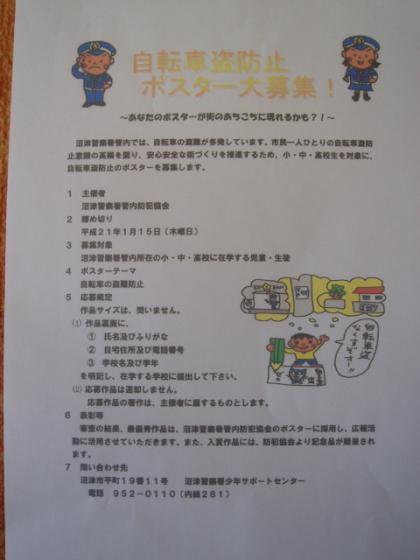 自転車盗防止
ポスター大募集！
～あなたのポスターが街のあちこちに現れるかも？！～
沼津警察署管内では、自転車の盗難が多発しています。市民一人ひとりの自転車盗防
止意識の高揚を図り、安心安全な街づくりを推進するため、小・中・高校生を対象に、
自転車盗防止のポスターを募集します。
1 主催者
沼津警察署管内防犯協会
2 締め切り
平成21年1月15日（木曜日）
3 募集対象
沼津警察署管内所在の小・中・高校に在学する児童・生徒
4 ポスターテーマ
自転車の盗難防止
5 応募規定
作品サイズは、問いません。
(1) 作品裏面に、
① 氏名及びふりがな
② 自宅住所及び電話番号
③ 学校名及び学年
を明記し、在学する学校に提出して下さい。
(2) 応募作品は返却しません。
応募作品の著作は、主催者に属するものとします。
自転車盗
なくすぞ～!!
6 表彰等
審査の結果、最優秀作品は、沼津警察署管内防犯協会のポスターに採用し、広報活
動に活用させていただきます。また、入賞作品には、防犯協会より記念品が贈呈され
ます。
7 問い合わせ先
沼津市平町19番11号 沼津警察署少年サポートセンター
電話 952-0110（内線281）